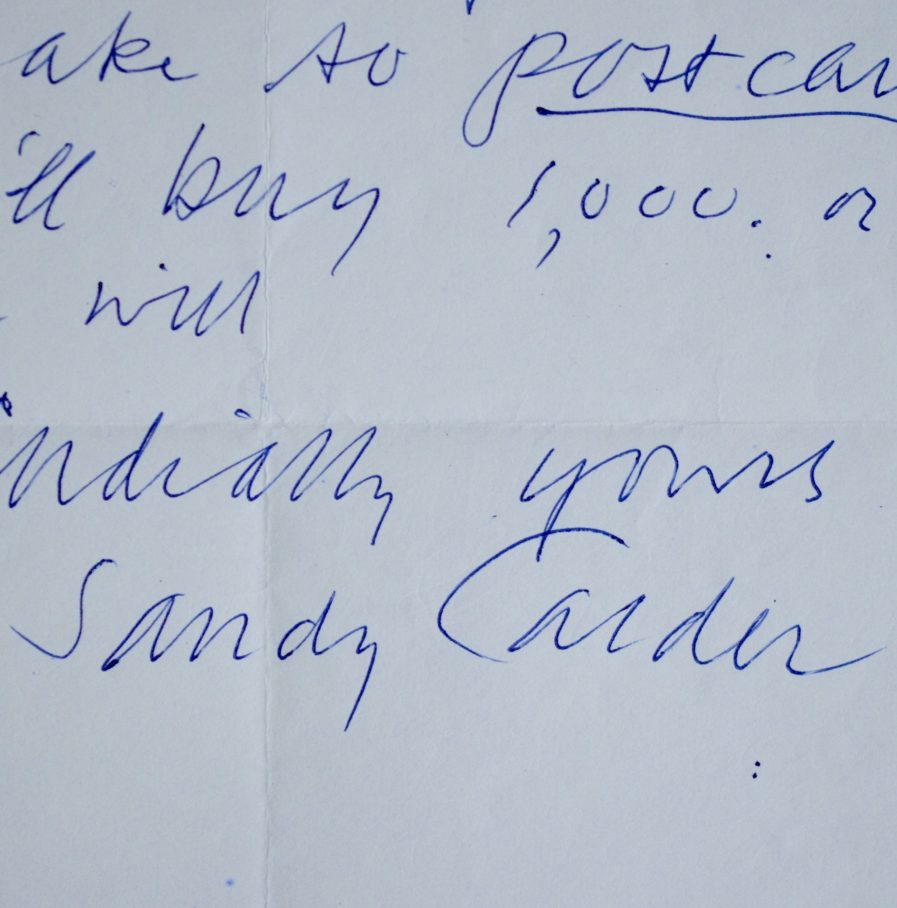 ake so postcar
'll buy 1,000. or
will
ordially yours
Sandy Calder